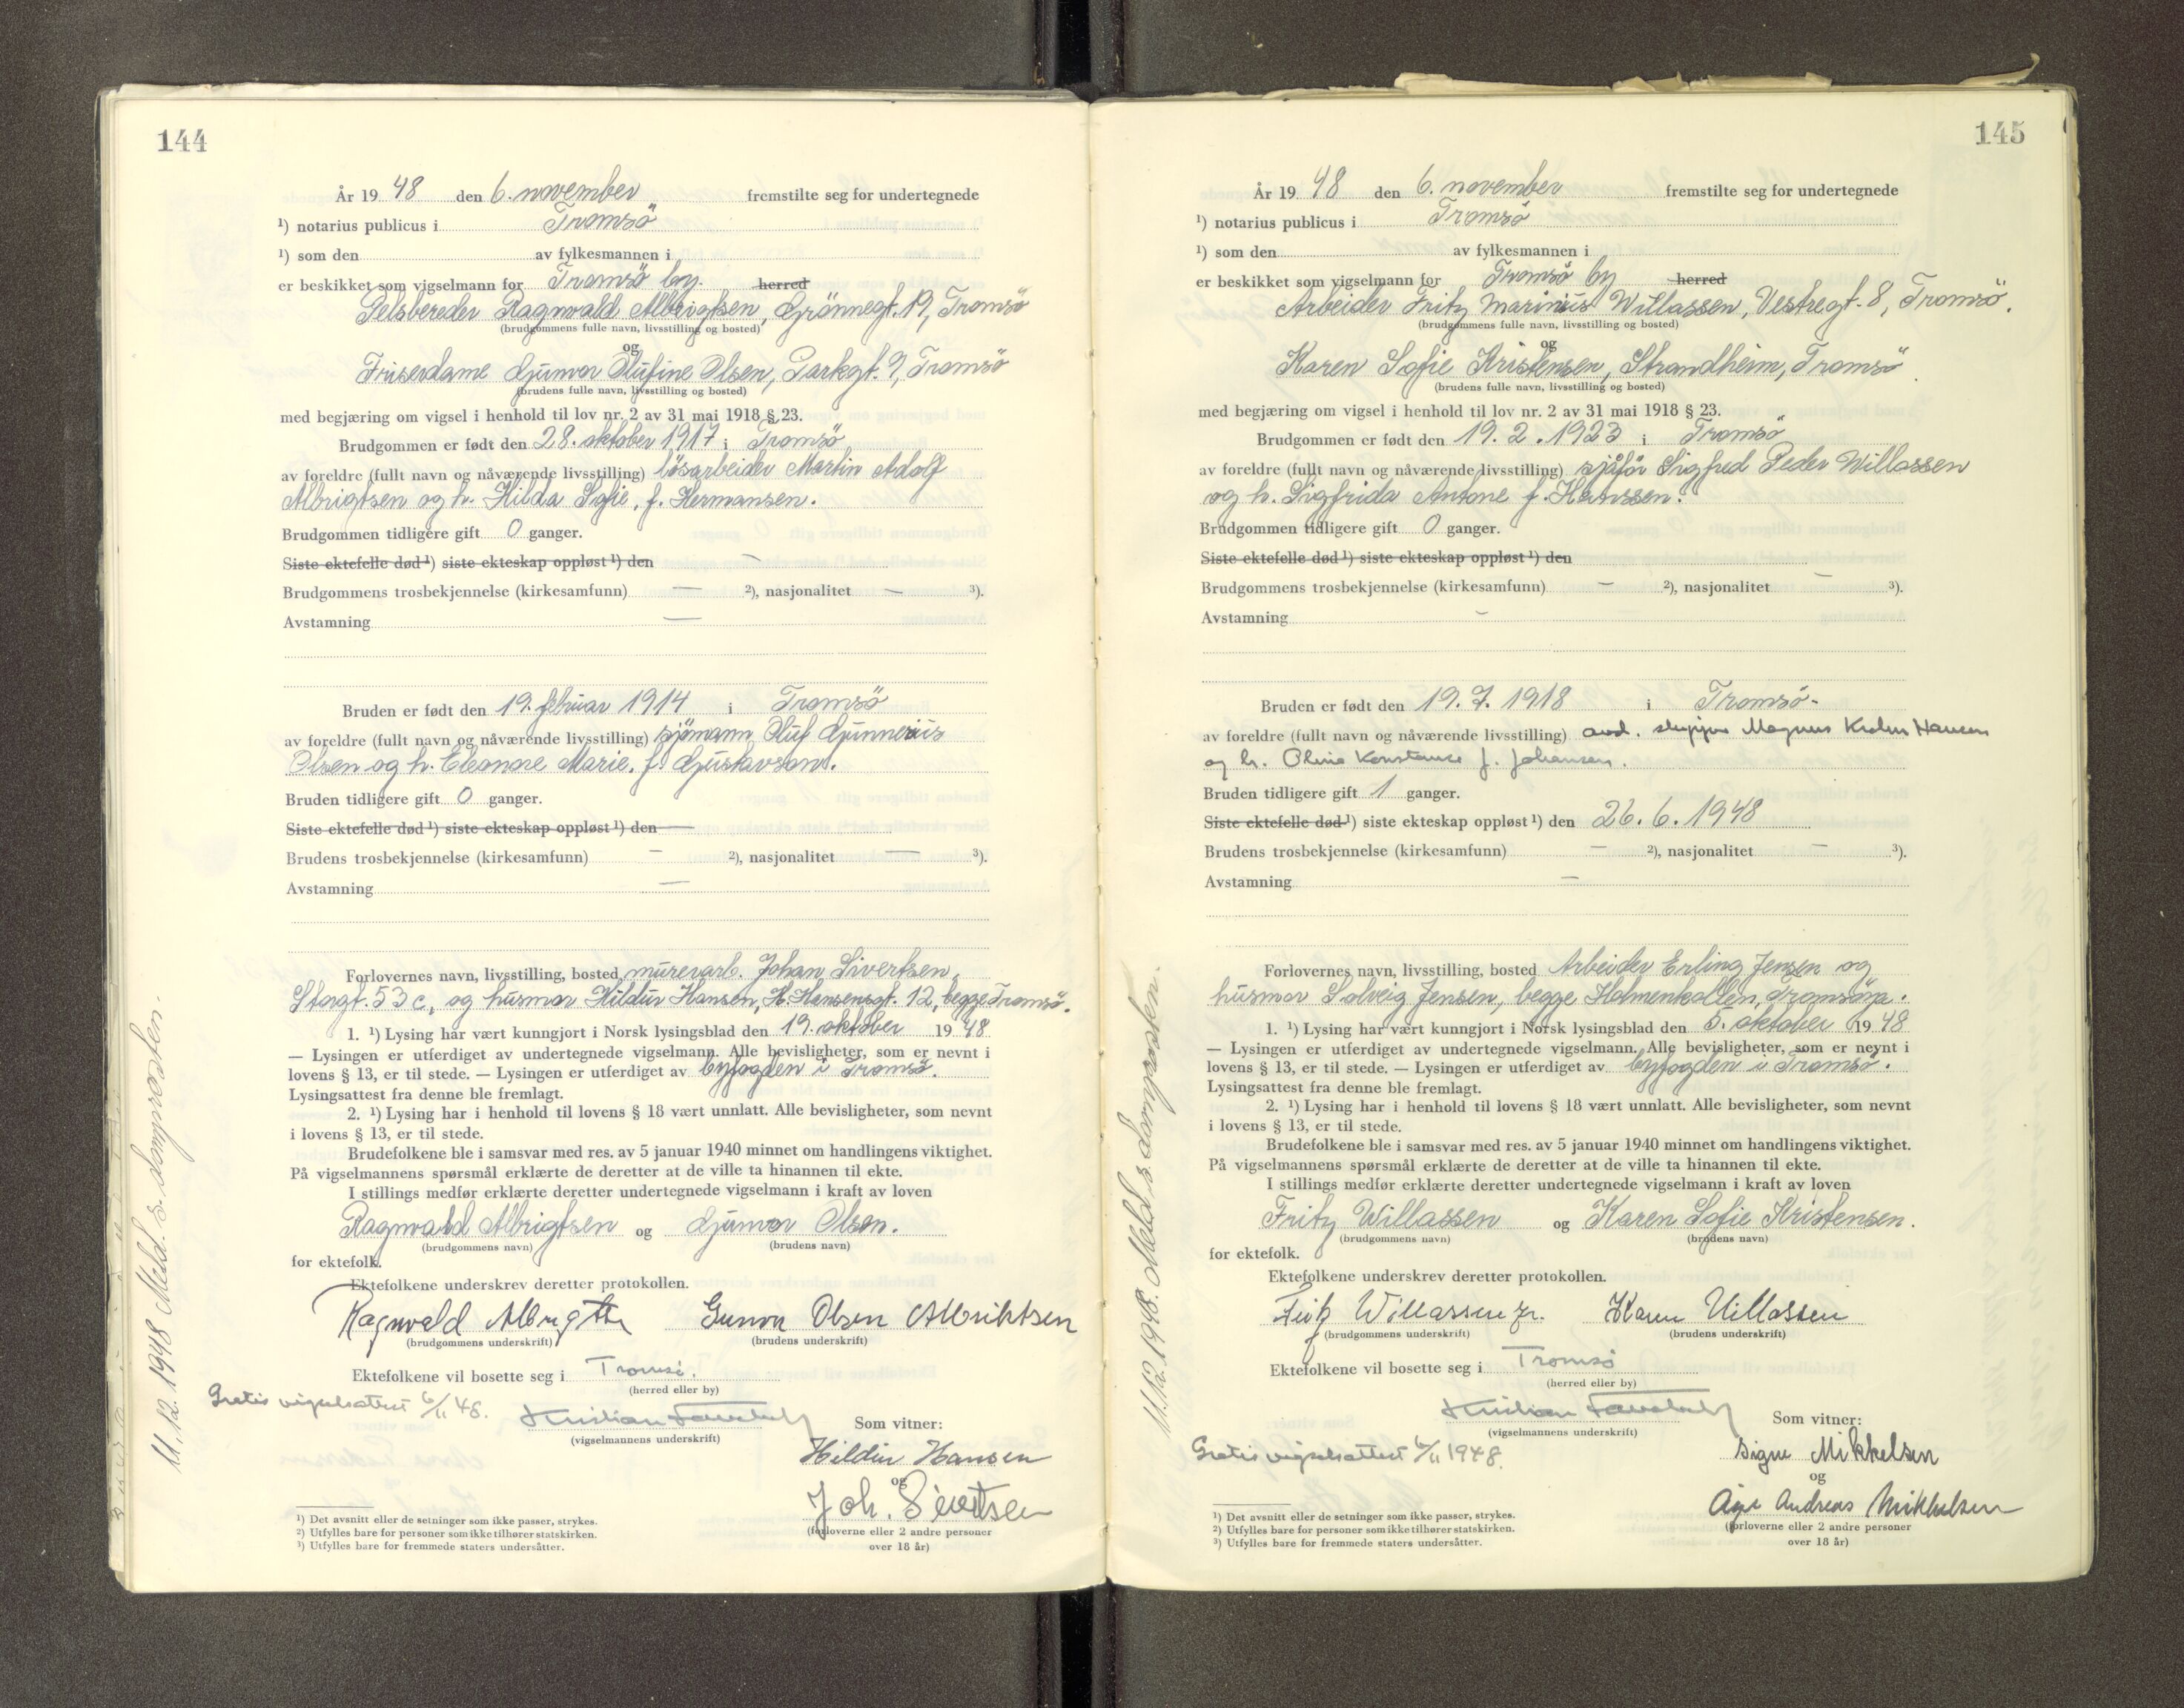 144
År 19 48 den 6. november fremstilte seg for undertegnede
¹) notarius publicus i Tromsö
¹) som den av fylkesmannen i
er beskikket som vigselmann for Tromsö by. herred
Pelsbereder Ragnvald Albrigtsen, Grönnegt. 19, Tromsö
(brudgommens fulle navn, livsstilling og bosted)
og
Friserdame Gunvor Olufine Olsen, Parkgt. 9, Tromsö
(brudens fulle navn, livsstilling og bosted)
med begjæring om vigsel i henhold til lov nr. 2 av 31 mai 1918 § 23.
Brudgommen er født den 28. oktober 1917 i Tromsö
av foreldre (fullt navn og nåværende livsstilling) lösarbeider Martin Adolf
Albrigtsen og h. Hilda Sofie, f. Hermansen.
Brudgommen tidligere gift 0 ganger.
Siste ektefelle død ¹) siste ekteskap oppløst ¹) den —
Brudgommens trosbekjennelse (kirkesamfunn) — ²), nasjonalitet — ³).
Avstamning —
Bruden er født den 19. februar 1914 i Tromsö
av foreldre (fullt navn og nåværende livsstilling) sjömann Oluf Gunnerius
Olsen og h. Eleonore Marie, f. Gustavson.
Bruden tidligere gift 0 ganger.
Siste ektefelle død ¹) siste ekteskap oppløst ¹) den —
Brudens trosbekjennelse (kirkesamfunn) — ²), nasjonalitet — ³).
Avstamning —
Forlovernes navn, livsstilling, bosted murerarb. Johan Sivertsen,
Storgt. 53 c, og husmor Hildur Hansen, H. Hansensgt. 12, begge Tromsö.
1. ¹) Lysing har vært kunngjort i Norsk lysingsblad den 19. oktober 19 48
— Lysingen er utferdiget av undertegnede vigselmann. Alle bevisligheter, som er nevnt i
lovens § 13, er til stede. — Lysingen er utferdiget av byfogden i Tromsö.
Lysingsattest fra denne ble fremlagt.
2. ¹) Lysing har i henhold til lovens § 18 vært unnlatt. Alle bevisligheter, som nevnt
i lovens § 13, er til stede.
Brudefolkene ble i samsvar med res. av 5 januar 1940 minnet om handlingens viktighet.
På vigselmannens spørsmål erklærte de deretter at de ville ta hinannen til ekte.
I stillings medfør erklærte deretter undertegnede vigselmann i kraft av loven
Ragnvald Albrigtsen og Gunvor Olsen.
(brudgommens navn) (brudens navn)
for ektefolk.
Ektefolkene underskrev deretter protokollen.
Ragnvald Albrigtsen Gunvor Olsen Albriktsen
(brudgommens underskrift) (brudens underskrift)
Ektefolkene vil bosette seg i Tromsö.
(herred eller by)
Gratis vigselsattest 6/11 48.
(vigselmannens underskrift)
Som vitner:
Hildur Hansen
og
Joh. Sivertsen
(forloverne eller 2 andre personer
over 18 år)
¹) Det avsnitt eller de setninger som ikke passer, strykes.
²) Utfylles bare for personer som ikke tilhører statskirken.
³) Utfylles bare for fremmede staters undersåtter.
11.12.1948 Meld. s. domprosten.
145
År 19 48 den 6. november fremstilte seg for undertegnede
¹) notarius publicus i Tromsö
¹) som den av fylkesmannen i
er beskikket som vigselmann for Tromsö by herred
Arbeider Fritz Marinius Willassen, Vestregt. 8, Tromsö.
(brudgommens fulle navn, livsstilling og bosted)
og
Karen Sofie Kristensen, Strandheim, Tromsö
(brudens fulle navn, livsstilling og bosted)
med begjæring om vigsel i henhold til lov nr. 2 av 31 mai 1918 § 23.
Brudgommen er født den 19. 2. 1923 i Tromsö
av foreldre (fullt navn og nåværende livsstilling) sjåför Sigfred Peder Willassen
og h. Sigfrida Antone f. Hanssen.
Brudgommen tidligere gift 0 ganger.
Siste ektefelle død ¹) siste ekteskap oppløst ¹) den
Brudgommens trosbekjennelse (kirkesamfunn) — ²), nasjonalitet — ³).
Avstamning —
Bruden er født den 19. 7. 1918 i Tromsö.
av foreldre (fullt navn og nåværende livsstilling) avd. skipper Magnus Hansen
og h. Oline Konstanse f. Johansen.
Bruden tidligere gift 1 ganger.
Siste ektefelle død ¹) siste ekteskap oppløst ¹) den 26. 6. 1948
Brudens trosbekjennelse (kirkesamfunn) — ²), nasjonalitet — ³).
Avstamning —
Forlovernes navn, livsstilling, bosted Arbeider Erling Jensen og
husmor Solveig Jensen, begge Holmenkollen, Tromsöya.
1. ¹) Lysing har vært kunngjort i Norsk lysingsblad den 5. oktober 19 48
— Lysingen er utferdiget av undertegnede vigselmann. Alle bevisligheter, som er nevnt i
lovens § 13, er til stede. — Lysingen er utferdiget av byfogden i Tromsö.
Lysingsattest fra denne ble fremlagt.
2. ¹) Lysing har i henhold til lovens § 18 vært unnlatt. Alle bevisligheter, som nevnt
i lovens § 13, er til stede.
Brudefolkene ble i samsvar med res. av 5 januar 1940 minnet om handlingens viktighet.
På vigselmannens spørsmål erklærte de deretter at de ville ta hinannen til ekte.
I stillings medfør erklærte deretter undertegnede vigselmann i kraft av loven
Fritz Willassen og Karen Sofie Kristensen.
(brudgommens navn) (brudens navn)
for ektefolk.
Ektefolkene underskrev deretter protokollen.
Fritz Willassen jr. Karen Willassen
(brudgommens underskrift) (brudens underskrift)
Ektefolkene vil bosette seg i Tromsö
(herred eller by)
(vigselmannens underskrift)
Gratis vigselsattest 6/11 1948.
Som vitner:
Signe Mikkelsen
og
Andreas Mikkelsen
(forloverne eller 2 andre personer
over 18 år)
¹) Det avsnitt eller de setninger som ikke passer, strykes.
²) Utfylles bare for personer som ikke tilhører statskirken.
³) Utfylles bare for fremmede staters undersåtter.
11.12.1948. Meld. s. domprosten.